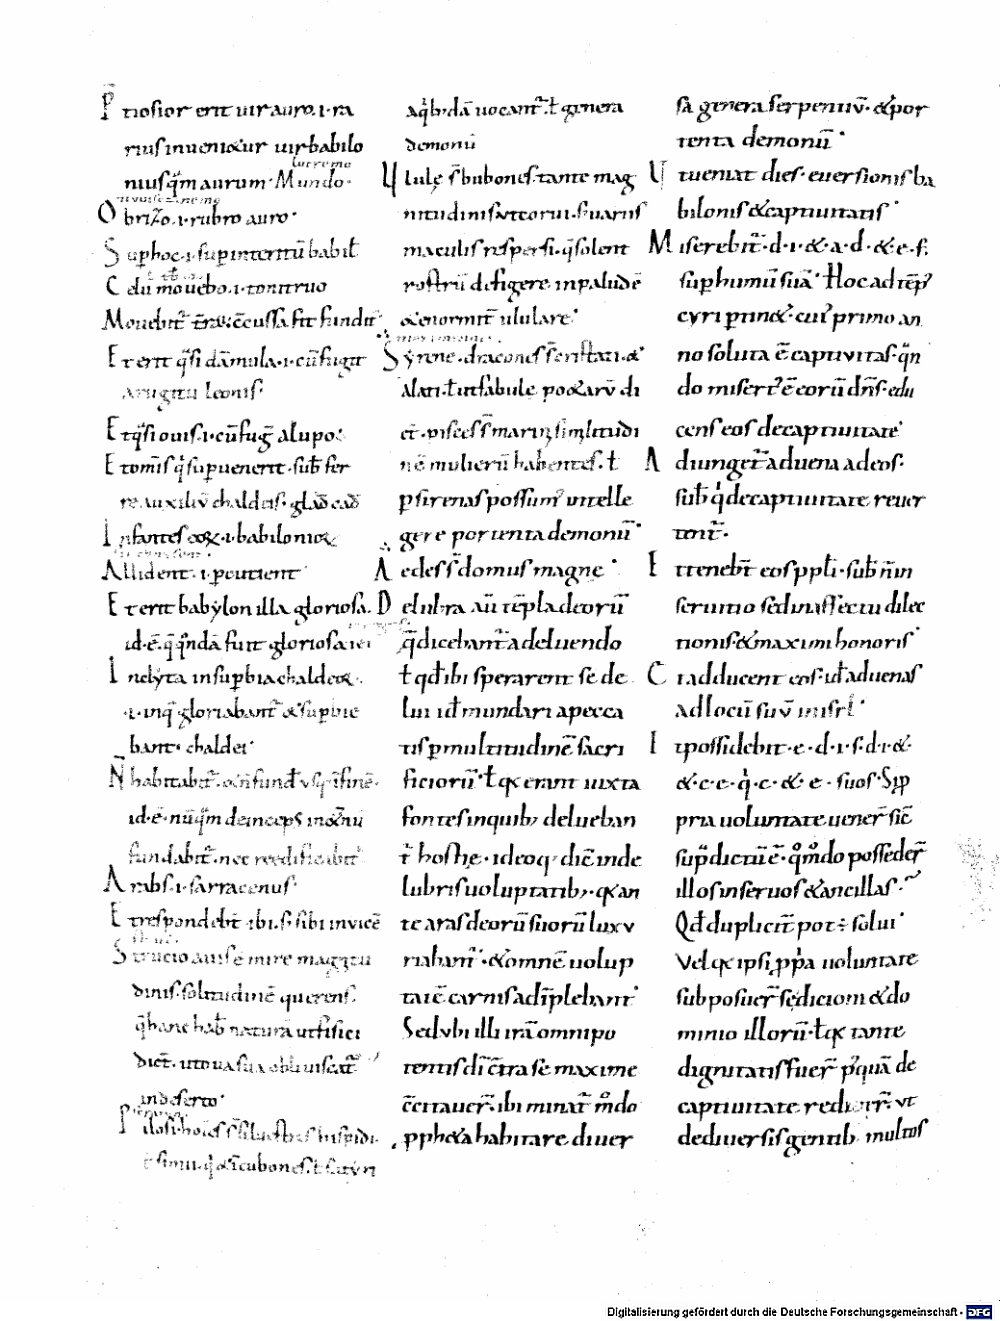 P̄tiosior erit uir auro .i. ra
rius inueni&ur uir babilo
nius q̃m aurum. Mundo.
Obrizo .i. rubro auro.
Sup hoc .i. sup interitū babił
Celū mouebo .i. tonitruo
Mouebit̃ t̃ra .i. c̄cussa fit fundit̃
Et erit q̃si dāmula .i. cū fugit
a rugitu leonis.
Et q̃si ouis .i. cū fug̃ a lupo.
Et om̄is q̃ supuenerit. sub̃ fer
re auxiliū chaldeis. glad̃ cad̃
Infantes eoꝝ .i. babilonioꝝ
Allident .i. pcutient
Et erit babylon illa gloriosa.
id. ē. q̄ q̃ndā fuit gloriosa
Inclyta in supbia chaldeoꝝ.
.i. in q̃ gloriabant̃ & supbie
bant chaldei.
N̄ habitabit̃. & n̄ fund̃ usq̣ ī finē.
id. ē. nūq̃m deinceps in
fundabit̃ nec reedificabit̃
Arabs .i. sarracenus.
Et respondebt̃ ibi .s. sibi inuicē
Strucio auis ē mire magnitu
dinis. solitudinē querens.
q̄ hanc hab̃ naturā ut
dict̃. ut oua sua obliuiscat̃
in deserto.
Pilosi. hoīes s̃ siluestres hispidi.
ł simii. q̃ & īcubones. ł satyri
a qb; dā uocant̃. ł genera
demonū
Ululę s̃ bubones. tante mag
nitudinis ut corui. .s. uariis
maculis respersi. q̃ solent
rostrū difigere in paludē
& enormit̃ ululare.
Syrene. dracones s̃ cristati. &
alati. ł ut fabule po&arū di
ct̃. pisces s̃ marini similitudi
nē mulierū habentes. ł
p sirenas possum' intelle
gere portenta demonū.
Aedes s̃ domus magne.
Delubra aū tēpla deorū
q̃ dicebant̃ a deluendo
ł qd̃ ibi sperarent se de
lui id̃ mundari a pecca
tis p multitudinē sacri
ficiorū. ł qꝫ erant iuxta
fontes in quib; delueban
t̃ hostie. ideoq; dic̄ in de
lubris uoluptatib;. qꝫ an
te aras deorū suorū luxu
riabant̃. & omnē uolup
tatē carnis adīplebant
Sed ubi illi irā omnipo
tentis dī c̄tra se maxime
c̄citauer̃. ibi minat̃ m̊do
pph&a habitare diuer
sa genera serpentiū. & por
tenta demonū.
Ut ueniat dies. euersionis ba
bilonis & captiuitatis.
Miserebit̃. d. i. & a. d. & e. s.
sup humū suā. Hoc ad tēp'
cyri ptin&. cui' primo an
no soluta ē captiuitas. q̃n
do misert' ē eorū dn̄s. edu
cens eos de captiuitate.
Adiunget̃ aduena ad eos.
sub̃ q̃ de captiuitate reuer
tnt̃.
Et tenebt̃ eos ppłi. sub̃ n̄ in
seruitio sed in affectu dilec
tionis. & maximi honoris
Et adducent eos. id̃ aduenas
ad locū suū
Et possidebit. e. d. i. s. d. i. &.
&. c. c. q̃. c. &. e. suos. Sı p
pria uoluntate uener̃ sic̄
sup̃ dictū ē. q̊m̊do posseder̃
illos in seruos & ancillas.
Qd̃ duplicit̃ pot ÷ solui.
Vel qꝫ ipsi ppa uoluntate
sub posuer̃ se dicioni & do
minio illorū. ł qꝫ tante
dignitatis fuer̃ p' quā de
captiuitate redier̃. ut
de diuersis gentib. multos
Digitalisierung gefördert durch die Deutsche Forschungsgemeinschaft - DFG